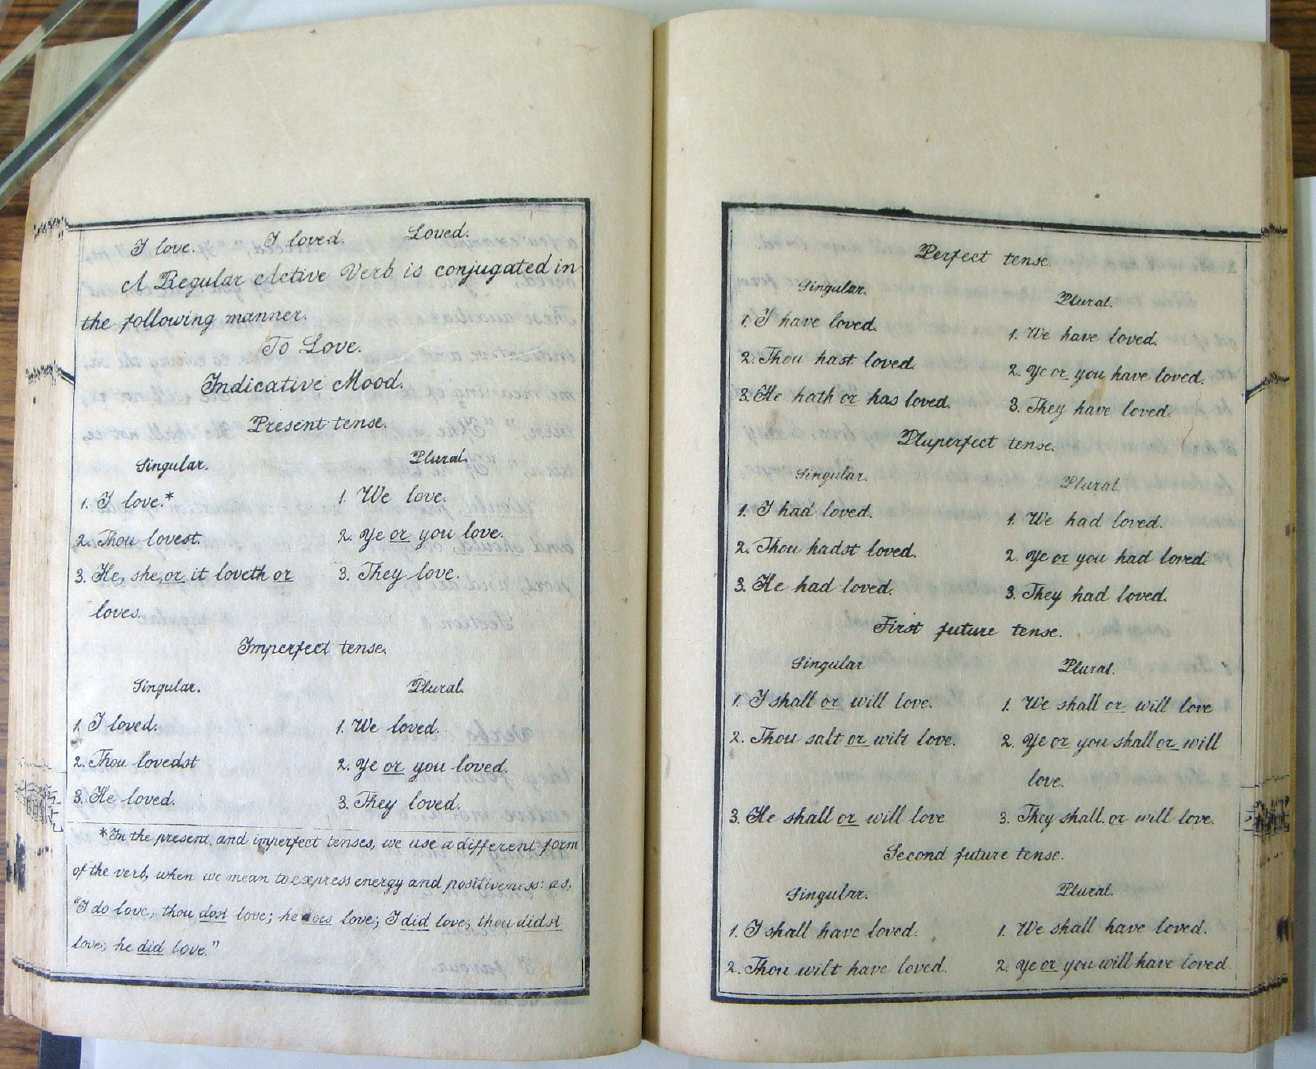 I love. I loved. Loved.
A Regular Active Verb is conjugated in
the following manner.
To Love.
Indicative Mood.
Present tense.
Singular. Plural.
1. I love.* 1. We love.
2. Thou lovest. 2. Ye or you love.
3. He, she, or it loveth or 3. They love.
loves.
Imperfect tense.
Singular. Plural.
1. I loved. 1. We loved.
2. Thou lovedst 2. Ye or you loved.
3. He loved. 3. They loved.
*In the present, and imperfect tenses, we use a different form
of the verb, when we mean to express energy and positiveness: as,
"I do love, thou dost love; he does love; I did love; thou didst
love; he did love."
Perfect tense.
Singular. Plural.
1. I have loved. 1. We have loved.
2. Thou hast loved. 2. Ye or you have loved.
3. He hath or has loved. 3. They have loved.
Pluperfect tense.
Singular. Plural
1. I had loved. 1. We had loved.
2. Thou hadst loved. 2. Ye or you had loved.
3. He had loved. 3. They had loved.
First future tense.
Singular Plural.
1. I shall or will love. 1. We shall or will love
2. Thou salt or wilt love. 2. Ye or you shall or will
love.
3. He shall or will love 3. They shall or will love.
Second future tense.
Singular. Plural.
1. I shall have loved. 1. We shall have loved.
2. Thou wilt have loved. 2. Ye or you will have loved